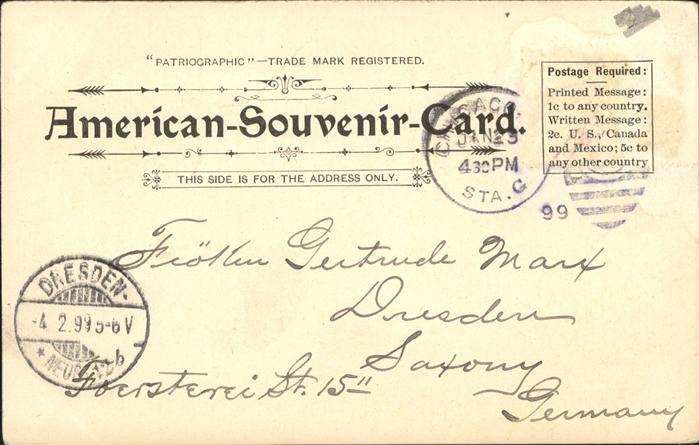 "PATRIOGRAPHIC"—TRADE MARK REGISTERED.
American-Souvenir-Card.
THIS SIDE IS FOR THE ADDRESS ONLY.
Postage Required:
Printed Message:
1c to any country.
Written Message:
2c. U. S., Canada
and Mexico; 5c to
any other country
JAN 23
4 30 PM
STA. G
99
Gertrude Marx
Dresden
Saxony
Foersterei St. 15"
Germany
DRESDEN-
-4 2.99 5-6 V